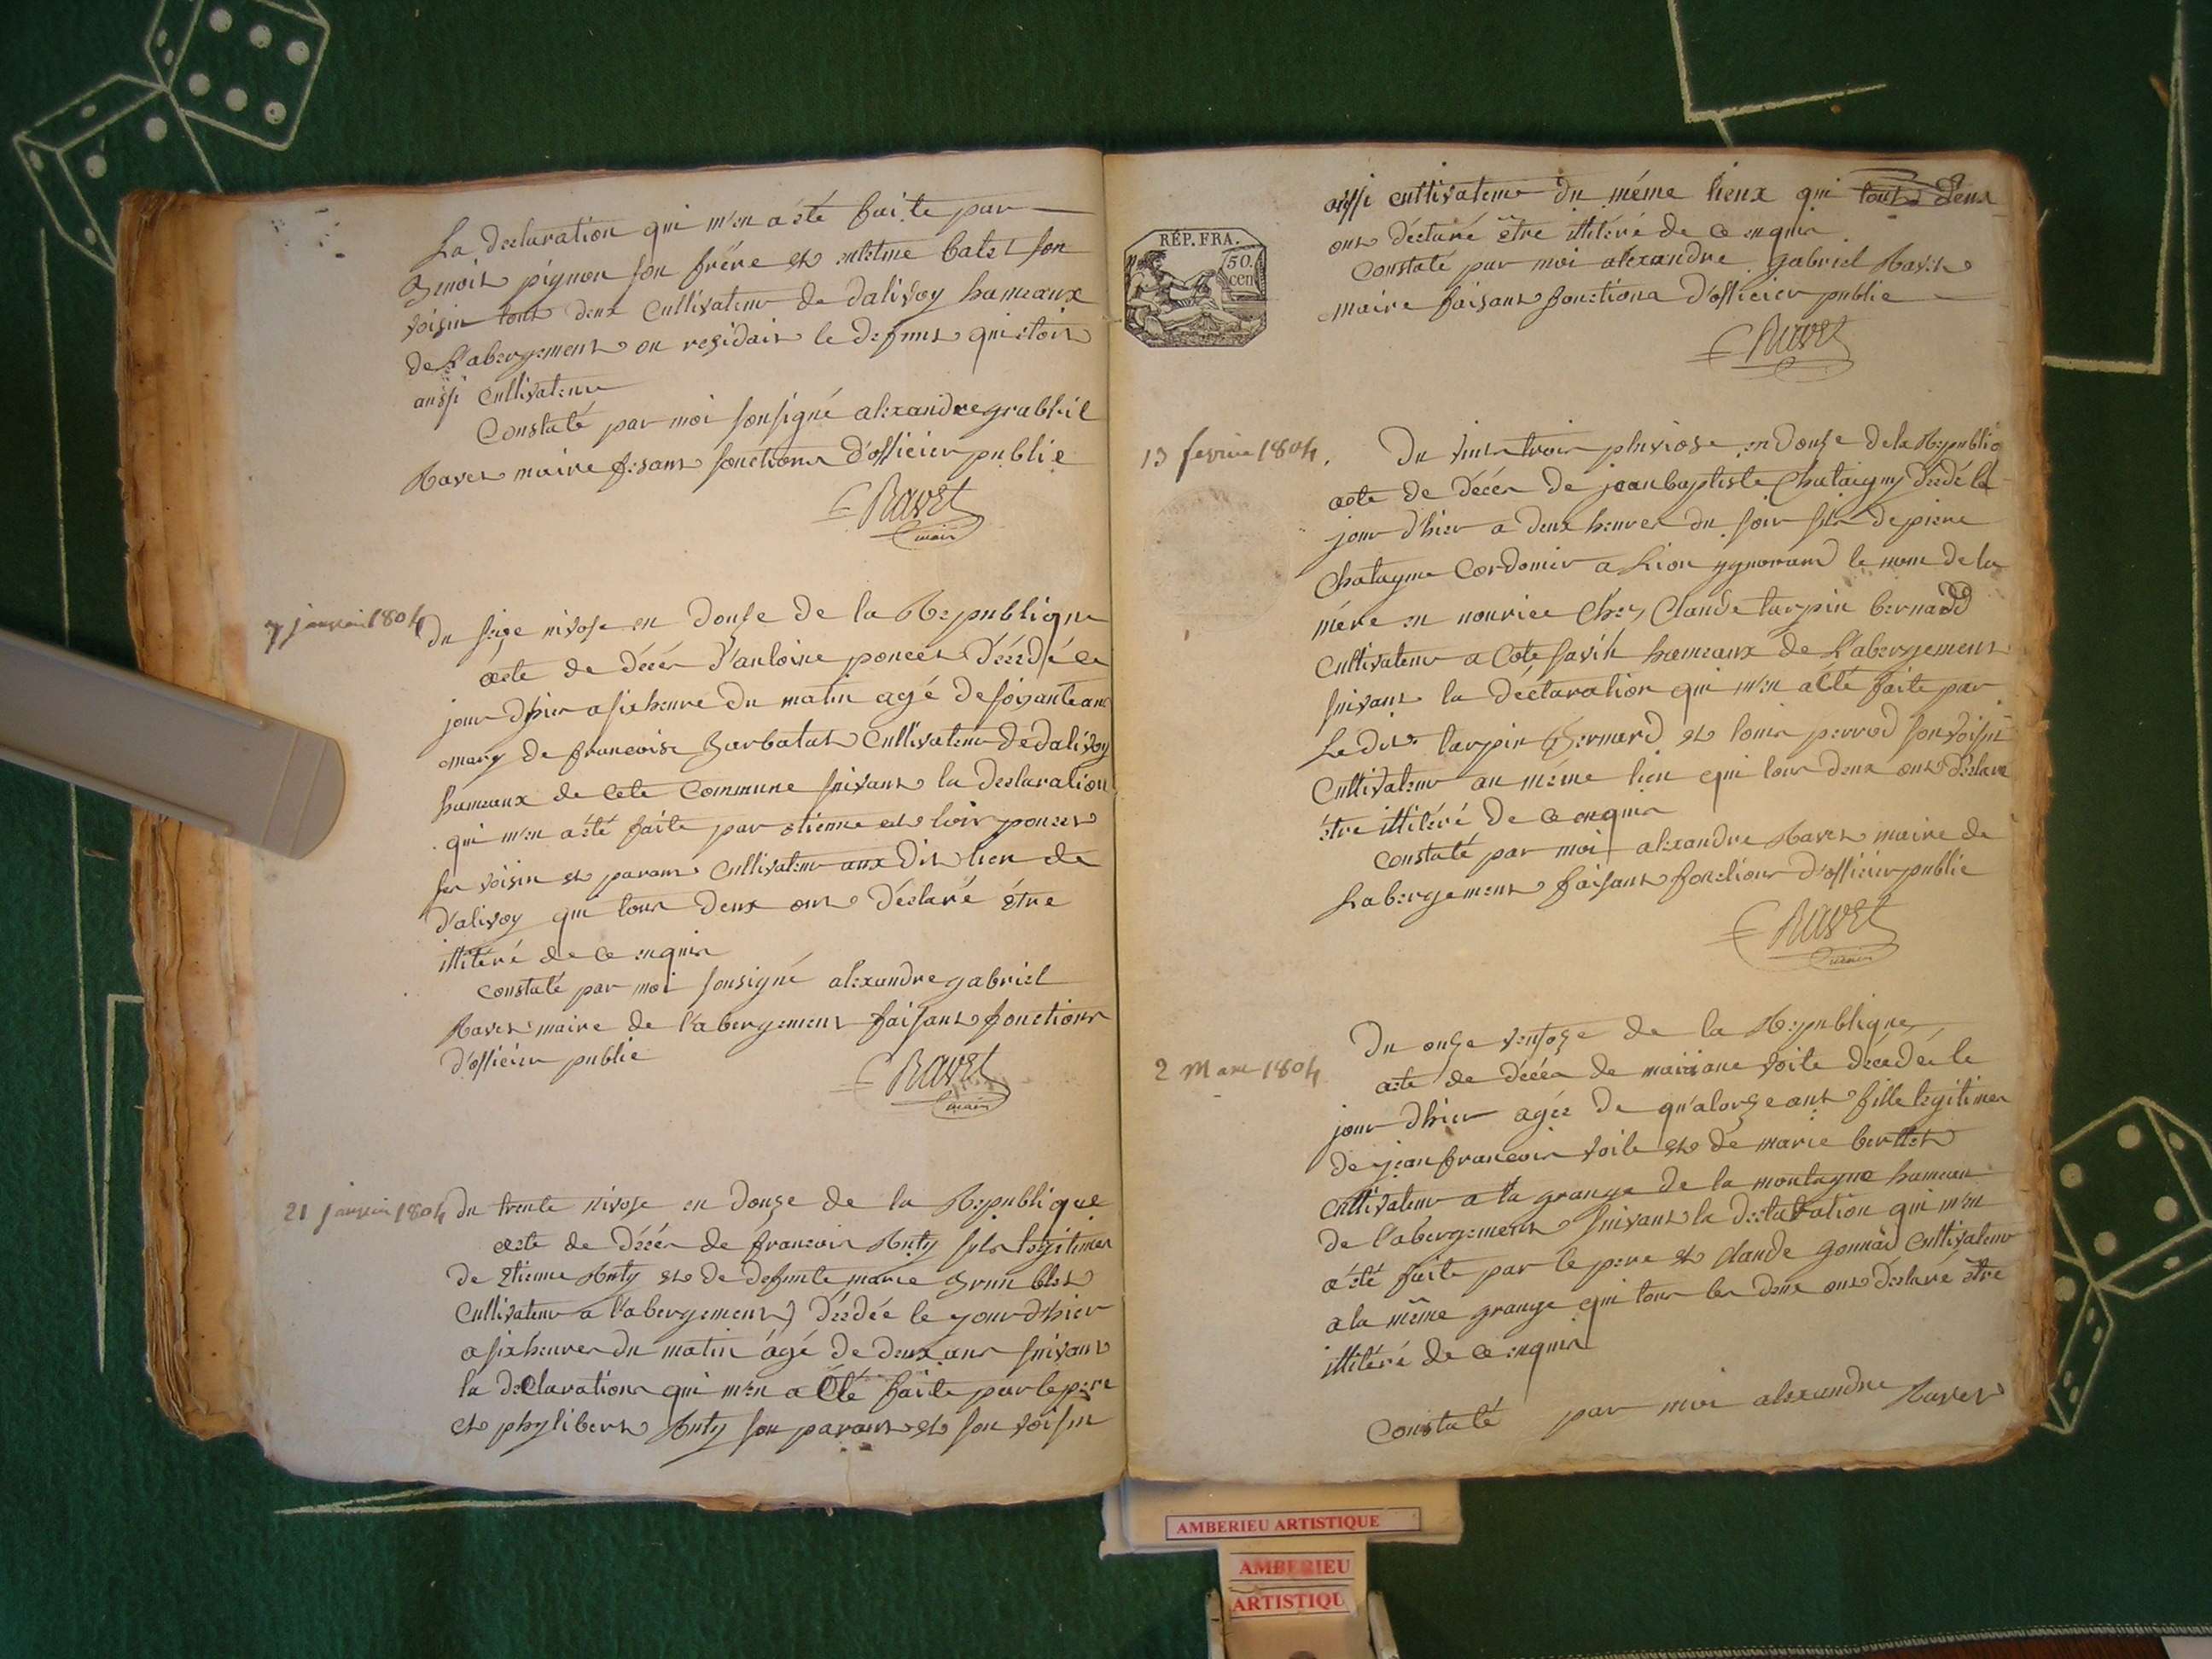 La declaration qui m'en a été faite par
Benoit pignon son frére et entelme batet son
voisin tout deux Cultivateur de dalivoy hameaux
de L'abergement ou residait le defunt qui etoit
aussi Cultivateur
Constaté par moi sousigné alexandre grabfiel
Ravet maire fesant fonctions d'officier public
Ravet
maire
7 janvier 1804
Du seize nivose en douse de la Republique
acte de décés d'antoine poncet décédé le
jour d'hier a six heure du matin agé de soixante ans
mary de francoise Barbatat Cultivateur de dalivoy
hameaux de cete Commune suivant la declaration
qui m'en a été faite par etienne et loir poncet
ses voisin et parant Cultivateur aux dit lieu de
d'alivoy qui tous deux ont déclaré étre
illiteré de ce enquis
Constaté par moi sousigné alexandre gabriel
Ravet maire de l'abergement faisant fonctions
d'officier public
Ravet
maire
21 janvier 1804
Du trente nivose en douze de la Republique
acte de décés de francois Huty fils legitimes
de Etienne Huty et de defunte marie Brunblet
Cultivateur a l'abergement décédée le jour d'hier
a six heures du matin âgé de deux ans suivant
la declarations qui m'en a été faite par le pere
et phylibert Huty son parant et son voisin
RÉP. FRA.
50.
cen
aussi cultivateur du méme lieux qui tout deux
ont déclaré être illiteré de ce enquis
Constaté par moi alexandre gabriel Ravet
maire faisant fonctions d'officier public
Ravet
13 fevrier 1804
Du vint trois pluviose en douse de la Republiq
acte de décés de jean baptiste Chataigny décédé le
jour d'hier a deux heures du soir fils de pierre
Chatagne Cordonier a Lion ygnorant le nom de la
mére en nourice Chez Claude turpin bernard
Cultivateur a Cote savin hameaux de L'abergement
suivant la déclaration qui m'en a été faite par
Le dit turpin Bernard et louis perrod son voisin
Cultivateur au méme lieu qui tous deux ont declaré
être illiteré de ce enquis
Constaté par moi alexandre Ravet maire de
Labergement faisant fonctions d'officier public
Ravet
maire
2 Mars 1804
Du onze ventoze de la Republique
acte de décés de mariane voite decedée le
jour d'hier agée de quatorze ant fille legitimes
de jean francois voite et de marie berthet
Cultivateur a la grange de la montagne hameau
de l'abergement suivant la declaration qui m'en
a été faite par le pere et claude gonnad Cultivateur
a la même grange qui tous les deux ont déclaré être
illitéré de ce enquis
Constaté par moi alexandre Ravet
AMBERIEU ARTISTIQUE
AMBERIEU
ARTISTIQU